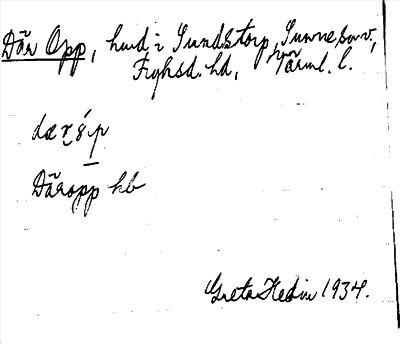 Där Opp, hmd i Sundstorp, Sunne sn,
Fryksd. hd, Värml. l.
Däropp hb
Greta Hedin 1934.